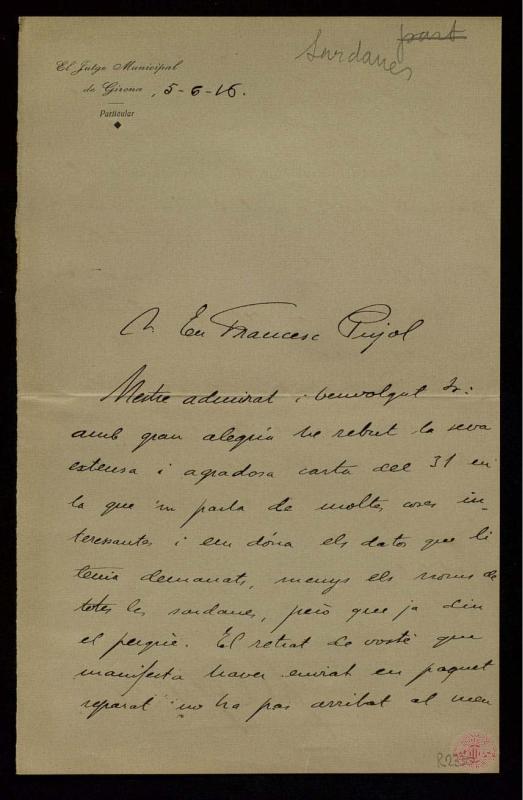 part
Sardanes
El Jutge Municipal
de Girona, 5-6-16.
Particular
En Francesc Pujol
Mestre admirat i benvolgut Sr:
amb gran alegria he rebut la seva
extensa i agradosa carta del 31 en
la que 'm parla de moltes coses in-
teressantes i em dóna els datos que li
tenia demanats, menys els noms de
totes les sardanes, però que ja diu
el perquè. El retrat de vostè que
manifesta haver enviat en paquet
separat no ha pas arribat al meu